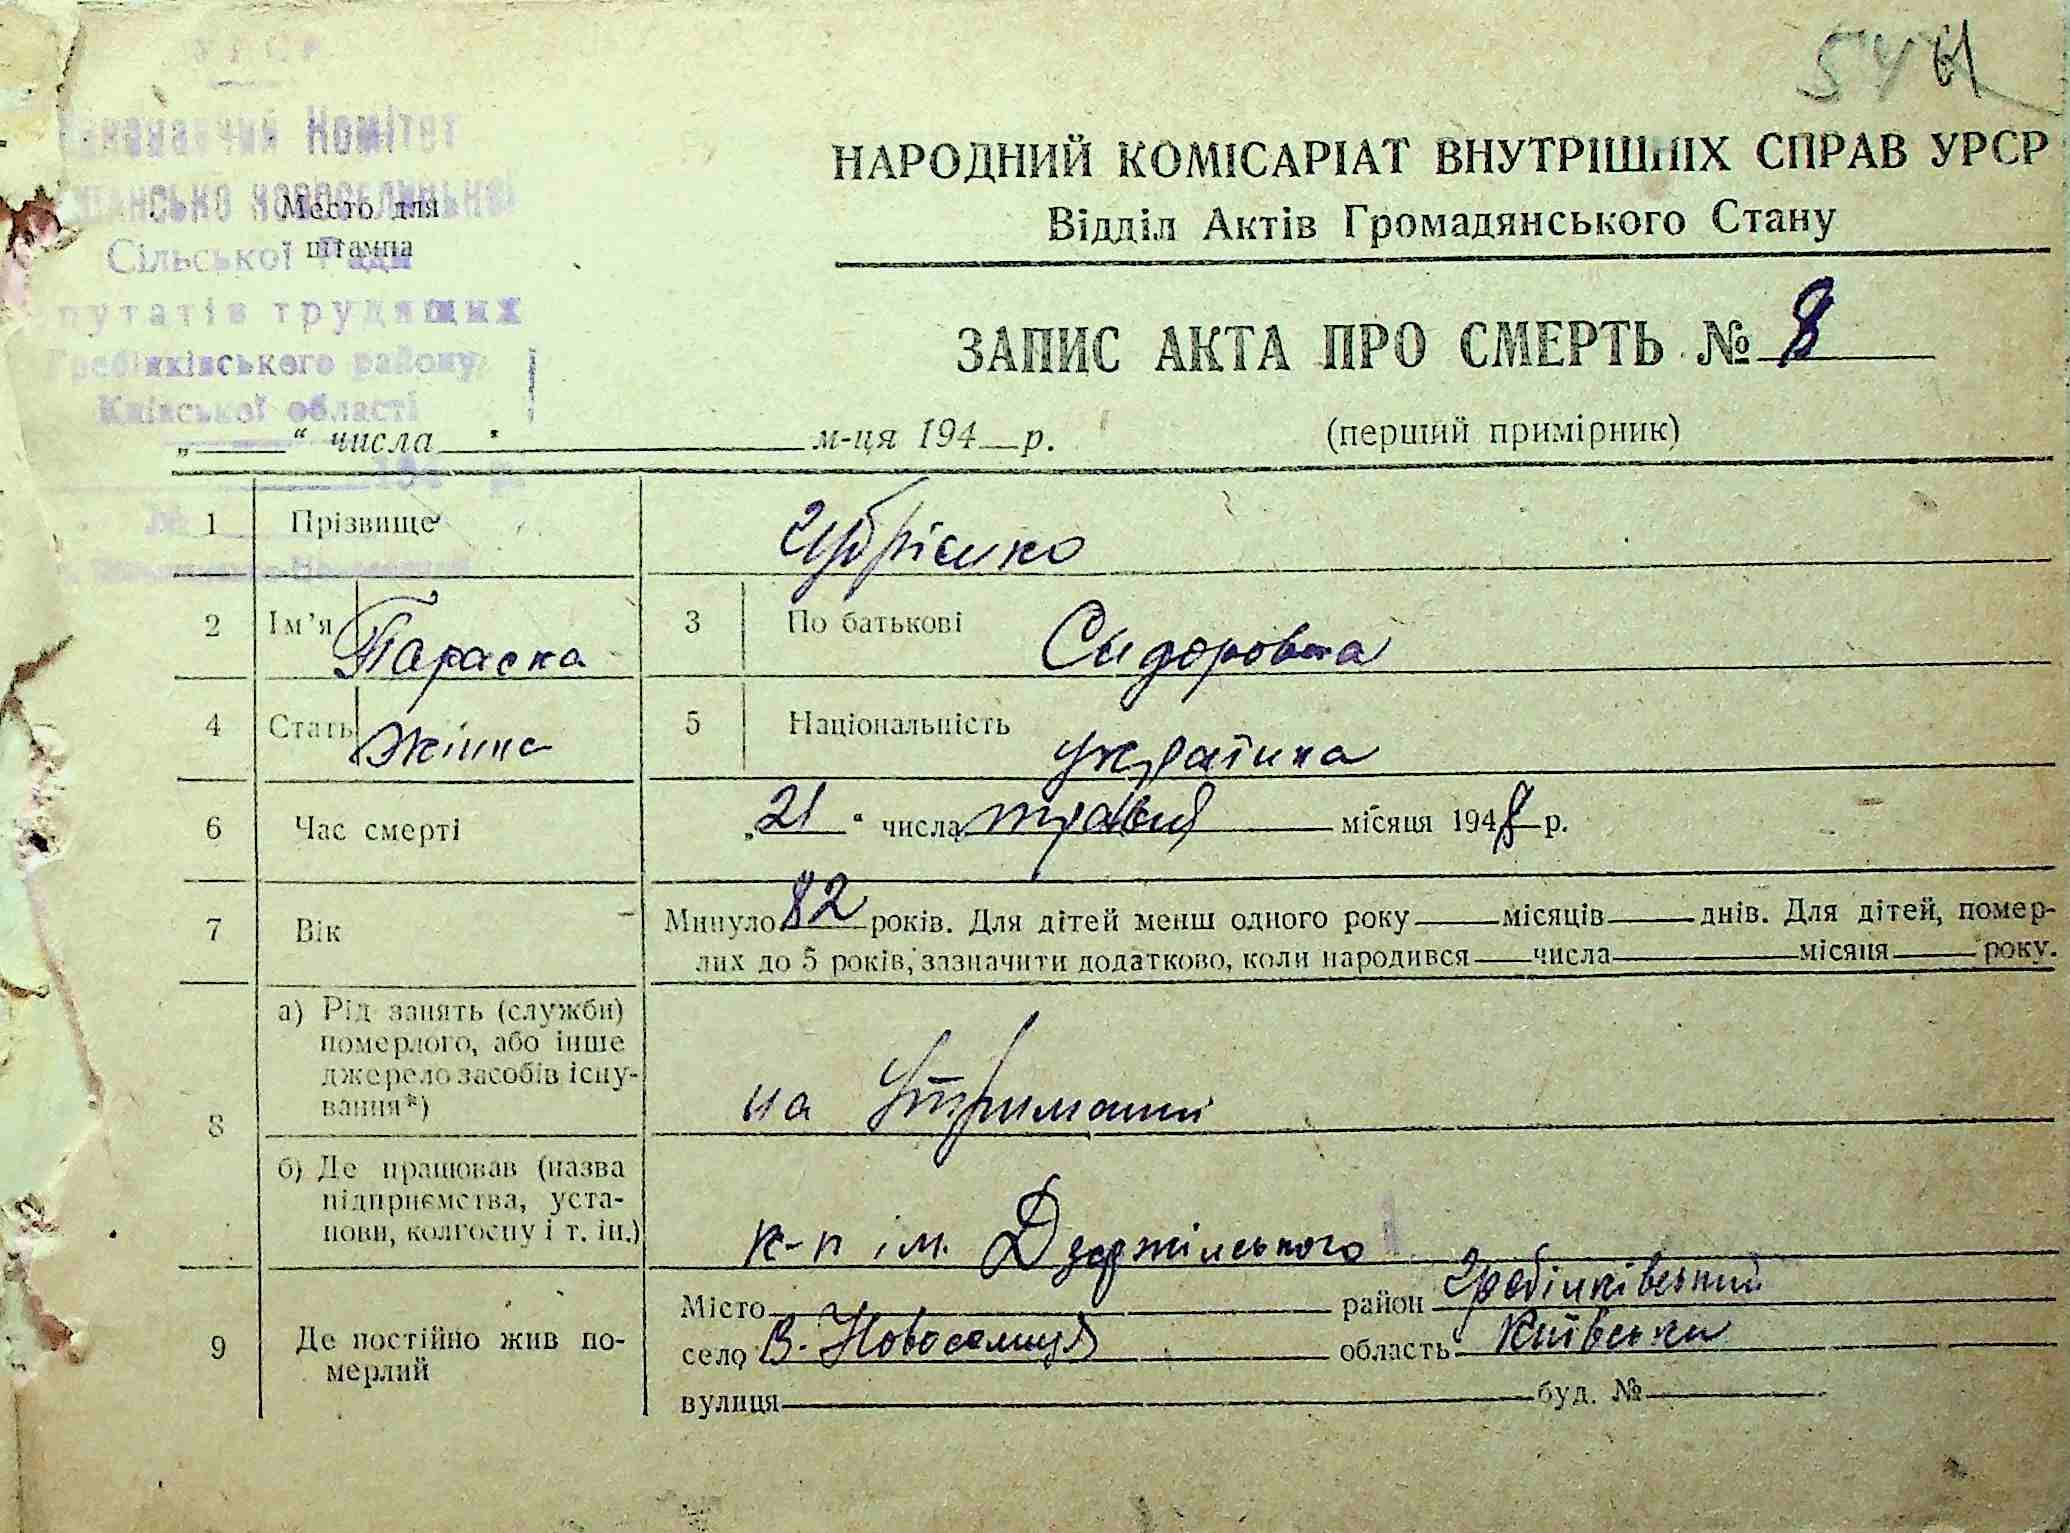 54 61
НАРОДНИЙ КОМІСАРІАТ ВНУТРІШНІХ СПРАВ УРСР
Відділ Актів Громадянського Стану
Комітет
Место для
штампа
Сільської Ради
путатів трудящих
Гребінківського району
Київської області
ЗАПИС АКТА ПРО СМЕРТЬ № 8
„ “ числа м-ця 194 р.
(перший примірник)
1 Прізвище Цибрієнко
2 Ім’я Параска 3 По батькові Сидоровна
4 Стать Жінка 5 Національність українка
6 Час смерті „21“ числа травня місяця 1948 р.
7 Вік Минуло 82 років. Для дітей менш одного року місяців днів. Для дітей, помер-
лих до 5 років, зазначити додатково, коли народився числа місяця року.
8 а) Рід занять (служби)
померлого, або інше
джерело засобів існу-
вання*) на утриманні
б) Де працював (назва
підприємства, уста-
нови, колгоспу і т. ін.) к-п ім. Дзержінського
9 Де постійно жив по-
мерлий
Місто район Гребінківський
село В. Новоселиця область Київська
вулиця буд. №